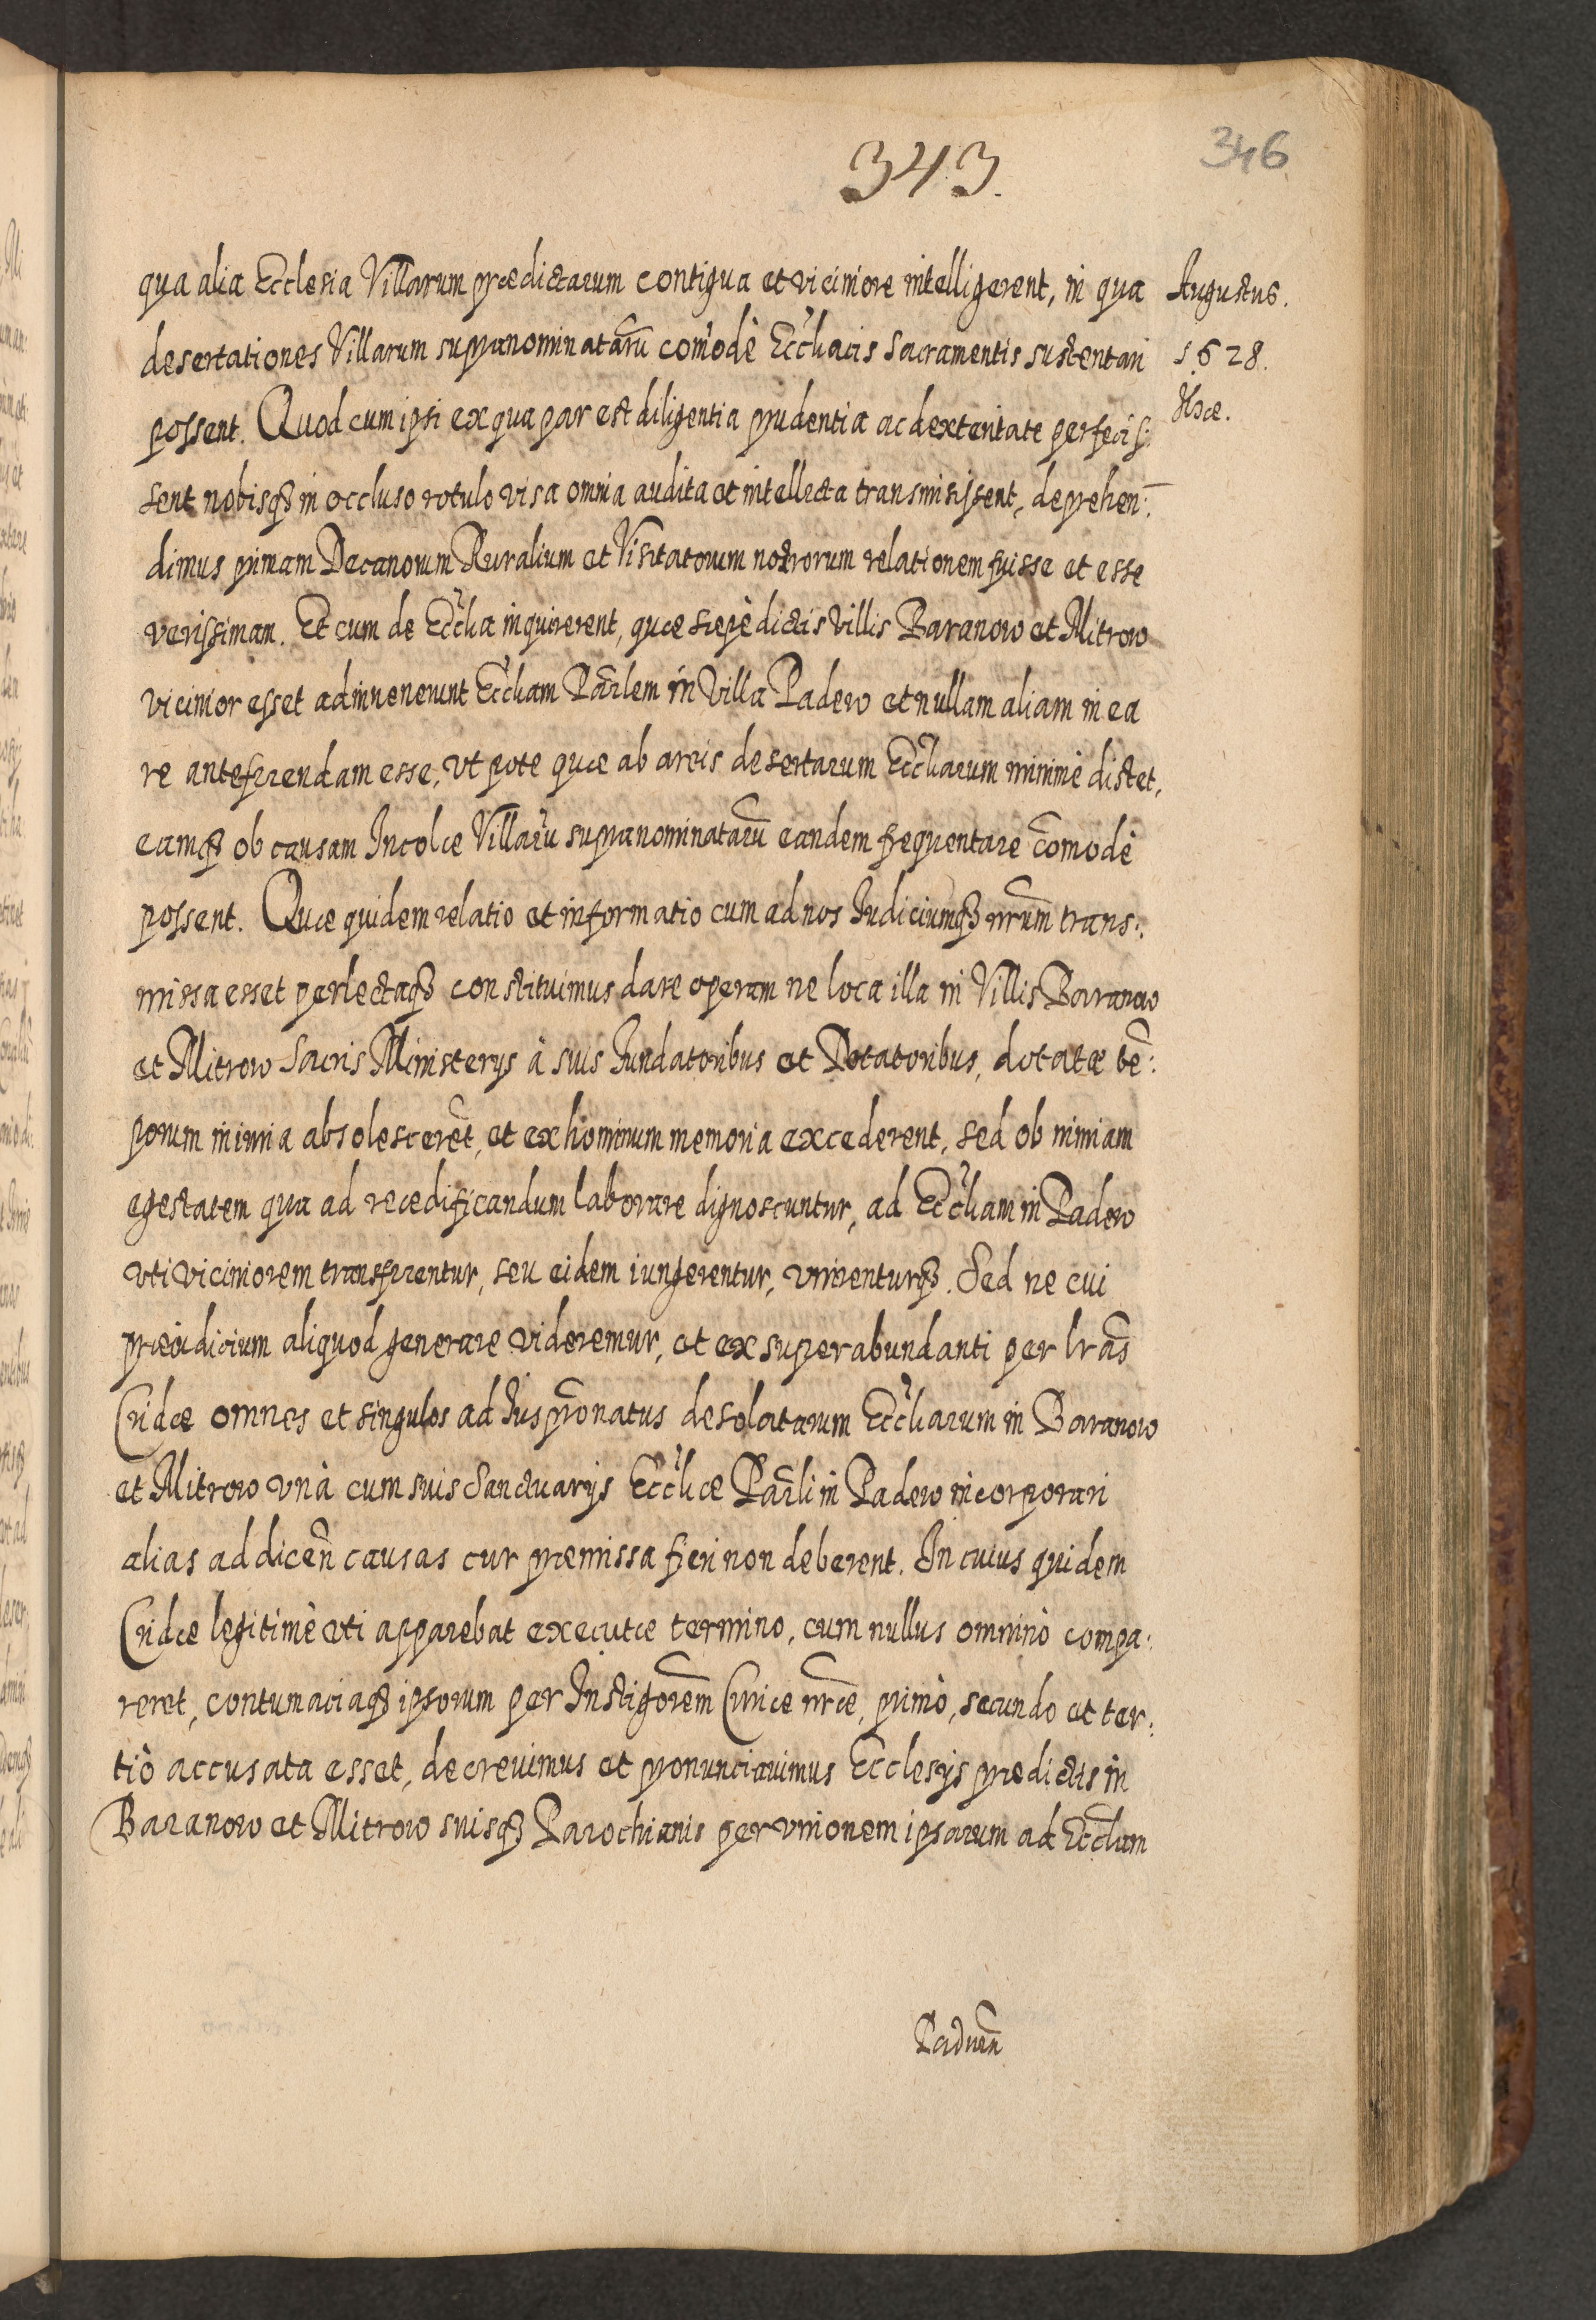 343.
346
qua alia Ecclesia Villarum prædictarum contigua et viciniore intelligerent, in qua
Augustus.
desertationes Villarum supranominatarũ comodè Eccliacis Sacramentis sustentari
1628.
possent. Quod cum ipsi ex qua par est diligentia prudentia ac dexteritate perfecis:
sent nobisq3 in occluso rotulo visa omnia audita et intellecta transmisissent, deprehen:
dimus primam Decanorum Ruralium et Visitatorum nostrorum relationem fuisse et esse
verissimam. Et cum de Ecclia inquirerent, quæ sæpè dictis Villis Baranow et Mitrow
vicinior esset adinvenerunt Eccliam Parlem in Villa Padew et nullam aliam in ea
re anteferendam esse, vt pote quæ ab areis desertarum Eccliarum minimè distet,
eamq3 ob causam Incolæ Villarũ supranominatarũ eandem frequentare comodè
possent. Quæ quidem relatio et informatio cum ad nos Iudiciumq3 nrum trans:
missa esset perlectaq3 constituimus dare operam ne loca illa in Villis Baranow
et Mitrow Sacris Ministerys à suis Fundatoribus et Dotatoribus, dotata tẽ:
porum iniuria absolescerẽt, et ex hominum memoria excederent, sed ob nimiam
egestatem qua ad reædificandum laborare dignoscuntur, ad Eccliam in Padew
vti viciniorem transferrentur, seu eidem iungerentur, vnirenturq3. Sed ne cui
præiudicium aliquod generare videremur, et ex superabundanti per lras
Cridæ omnes et singulos ad Iuspronatus desolatarum Eccliarum in Baranow
et Mitrow vnà cum suis Sanctuarijs Eccliæ Parli in Padew incorporari
alias ad dicen causas cur præmissa fieri non deberent. In cuius quidem
Cridæ legitimè vti apparebat executæ termino, cum nullus omninò compa:
reret, contumaciaq3 ipsorum per Instigorem Curiæ nræ, primò, secundo et ter:
tiò accusata esset, decrevimus et pronunciavimus Ecclesijs prædictis in
Baranow et Mitrow suisq3 Parochianis per vnionem ipsarum ad Eccliam
Padven